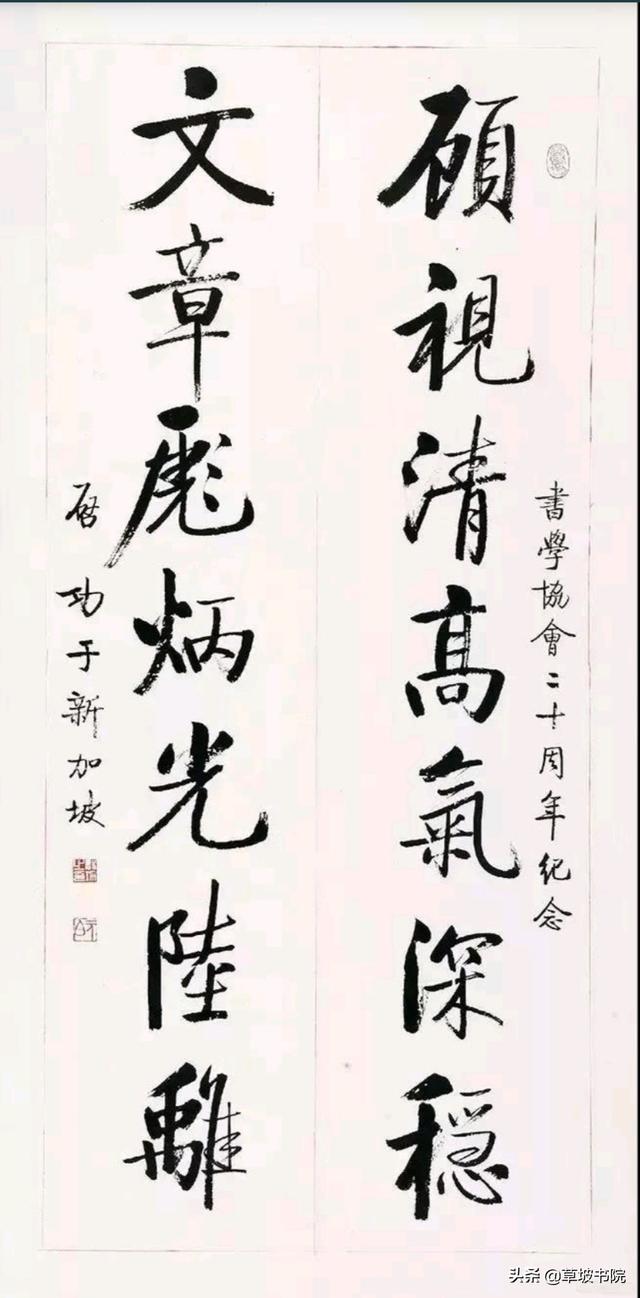 書學協會二十周年纪念
顾視清高氣深穩
文章彪炳光陸離
启功于新加坡
头条 @草坡书院